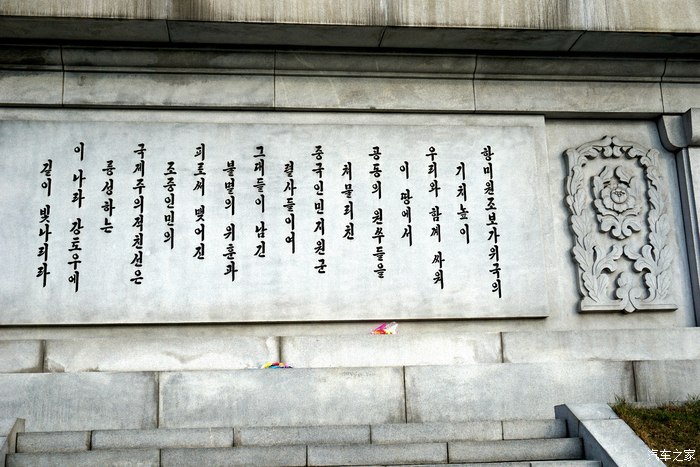 항미원조보가위국의
기치높이
우리와 함께 싸워
이 땅에서
공동의 원쑤들을
쳐물리친
중국인민지원군
렬사들이여
그대들이 남긴
불멸의 위훈과
피로써 맺어진
조중인민의
국제주의적친선은
륭성하는
이 나라 강토우에
길이 빛나리라
汽车之家